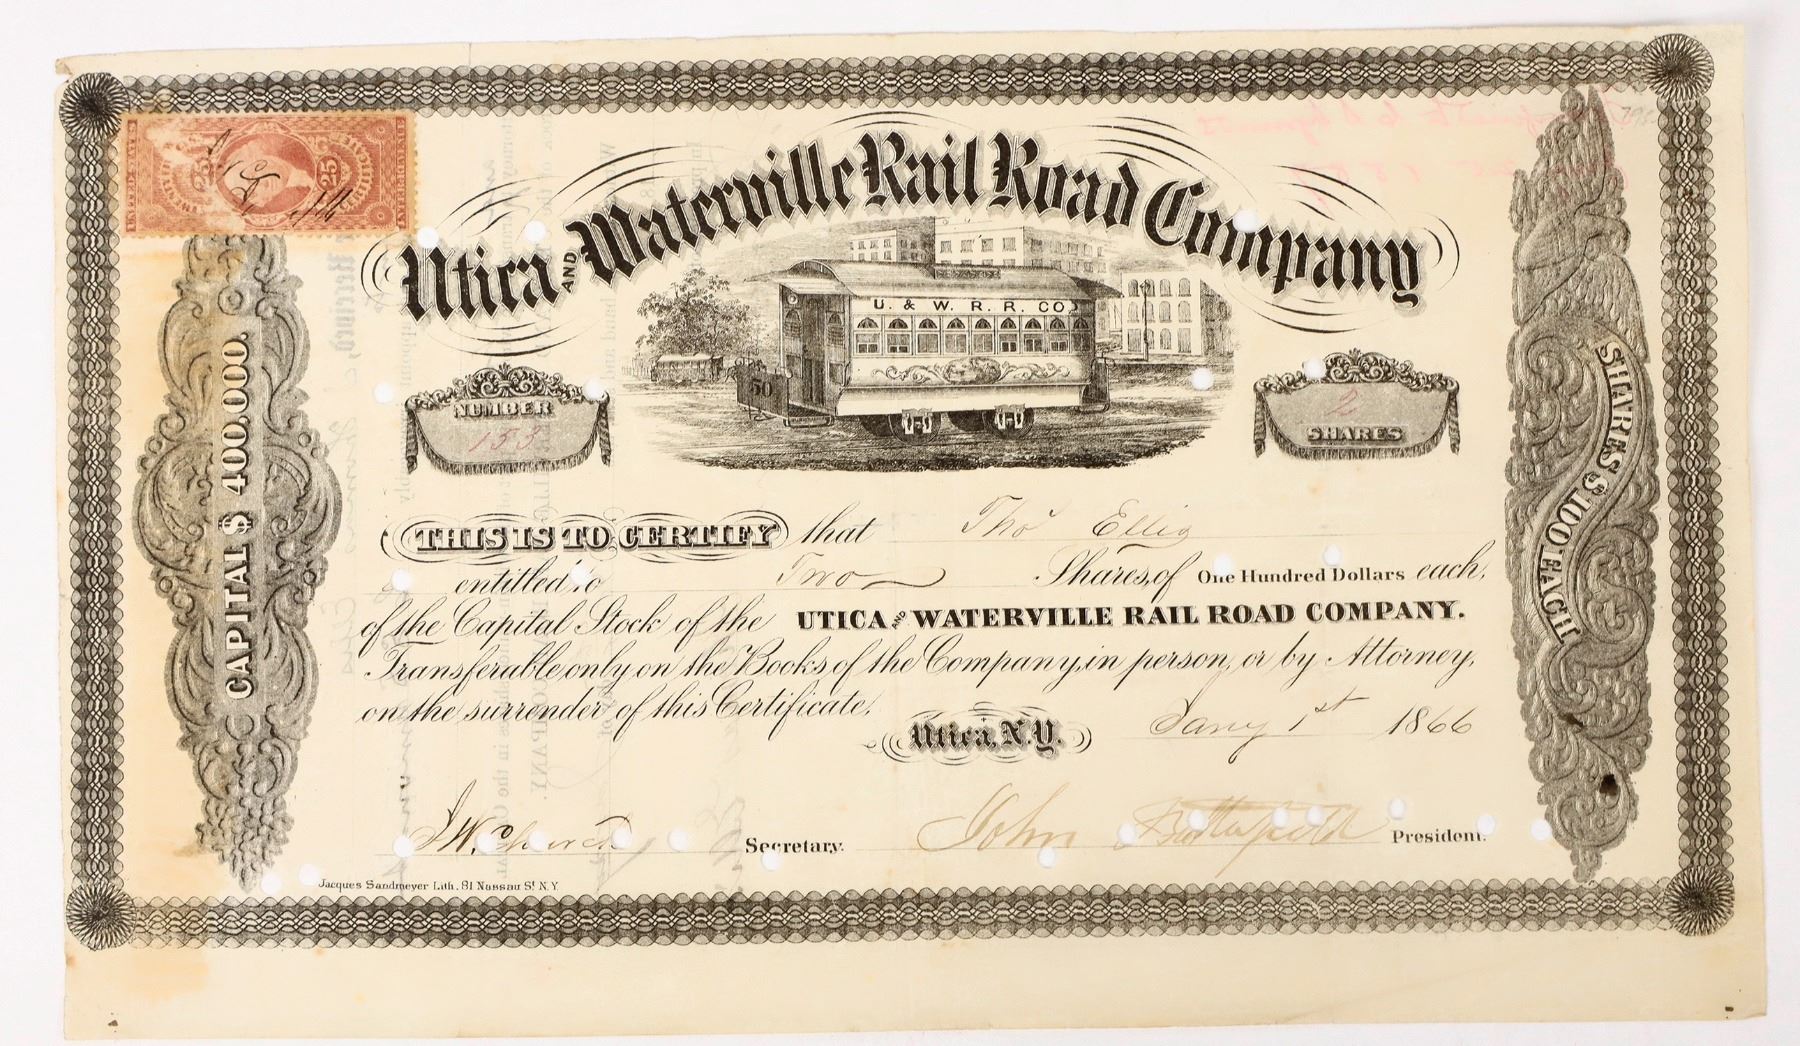 UNITED STATES
INTER. REVENUE
25 25
CERTIFICATE
Utica AND Waterville Rail Road Company
U. & W. R. R. CO.
50
NUMBER
153
2
SHARES
CAPITAL $ 400.000.
SHARES $ 100 EACH
THIS IS TO CERTIFY that Thos Ellis
is entitled to Two Shares, of One Hundred Dollars each,
of the Capital Stock of the UTICA AND WATERVILLE RAIL ROAD COMPANY.
Transferable only on the Books of the Company, in person, or by Attorney,
on the surrender of this Certificate.
Utica, N.Y. Jany 1st 1866
J W Church Secretary. John Butterfield President.
Jacques Sandmeyer Lith. 81 Nassau St. N.Y.